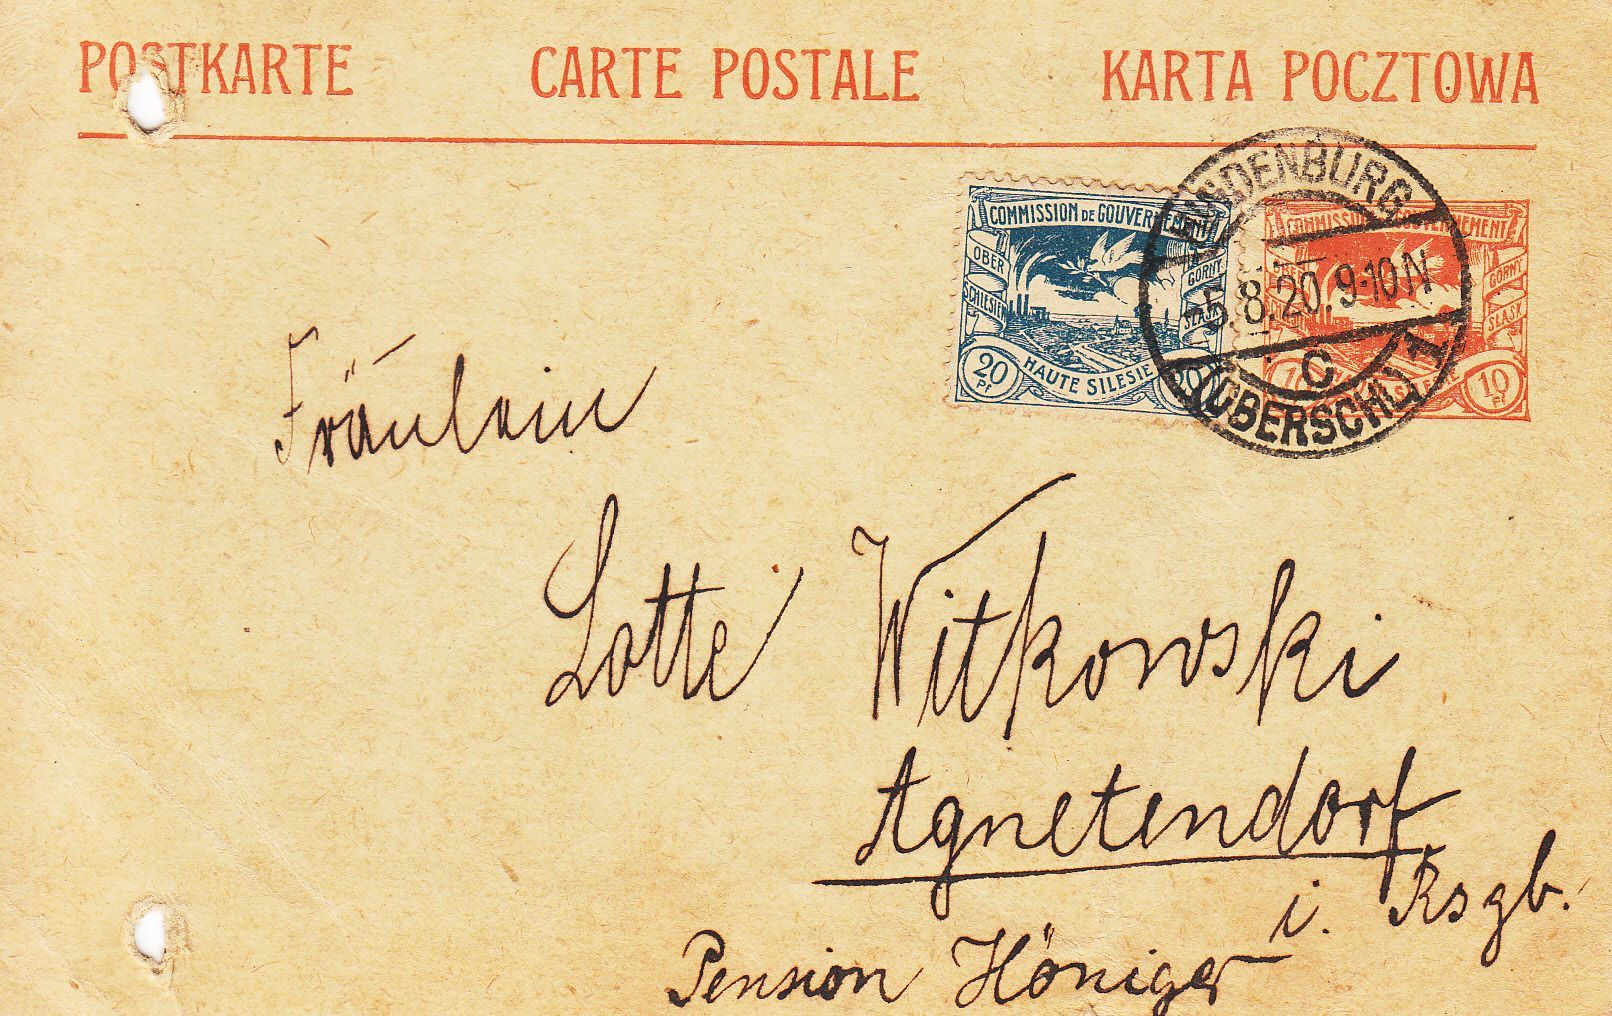 POSTKARTE CARTE POSTALE KARTA POCZTOWA
COMMISSION DE GOUVERNEMENT
OBER SCHLESIEN
GORNY SLASK
20 Pf HAUTE SILESIE 20
COMMISSION DE GOUVERNEMENT
GORNY SLASK
10 Pf
HINDENBURG
5.8.20.9-10N
C
(OBERSCHL) 1
Fräulein
Lotte Witkowski
Agnetendorf
i. Rsgb.
Pension Höniger